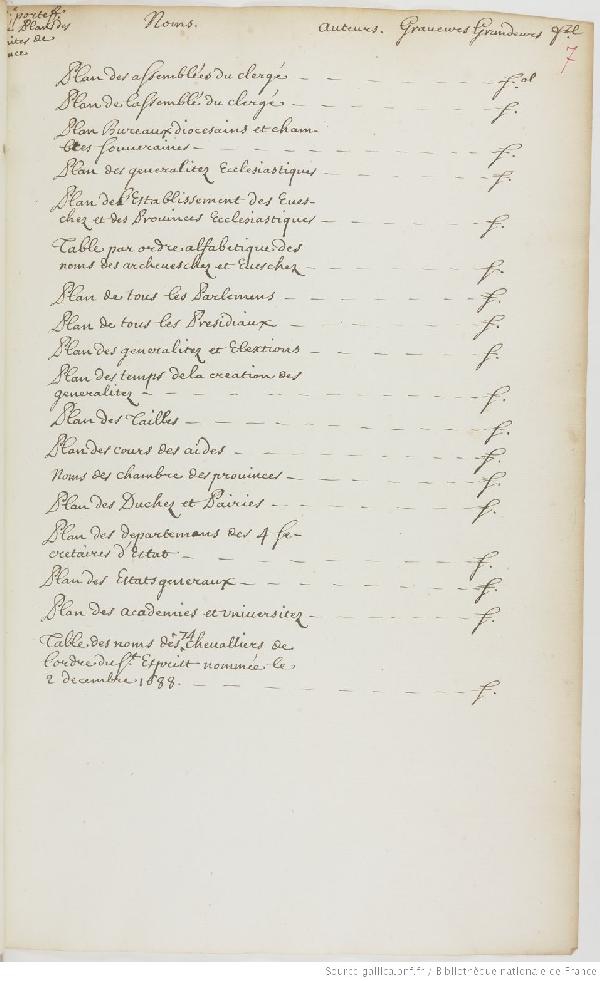 portef.
Plans des
ites de
nce
Noms. Auteurs. Graueurs Grandeurs qté
7
Plan des assemblées du clergé f.ol
Plan de l'assemblé du clergé f.
Plan Bureaux diocesains et cham-
bres souueraines f.
Plan des generalitez Ecclesiastiques f.
Plan de l'Establissement des Eues-
chez et des Prouinces Ecclesiastiques f.
Table par ordre alfabetique des
noms des archeueschez et Eueschez f.
Plan de tous les Parlemens f.
Plan de tous les Presidiaux f.
Plan des generalitez et Elextions f.
Plan des temps de la creation des
generalitez f.
Plan des Tailles f.
Plan des cours des aides f.
Noms des chambre des prouinces f.
Plan des Duchez et Pairies f.
Plan des departemans des 4 se-
cretaires d'Estat f.
Plan des Estats generaux f.
Plan des academies et vniuersitez f.
Table des noms des 74 cheualliers de
l'ordre du St. Espritt nommée le
2 decembre 1688. f.
Source gallica.bnf.fr / Bibliothèque nationale de France